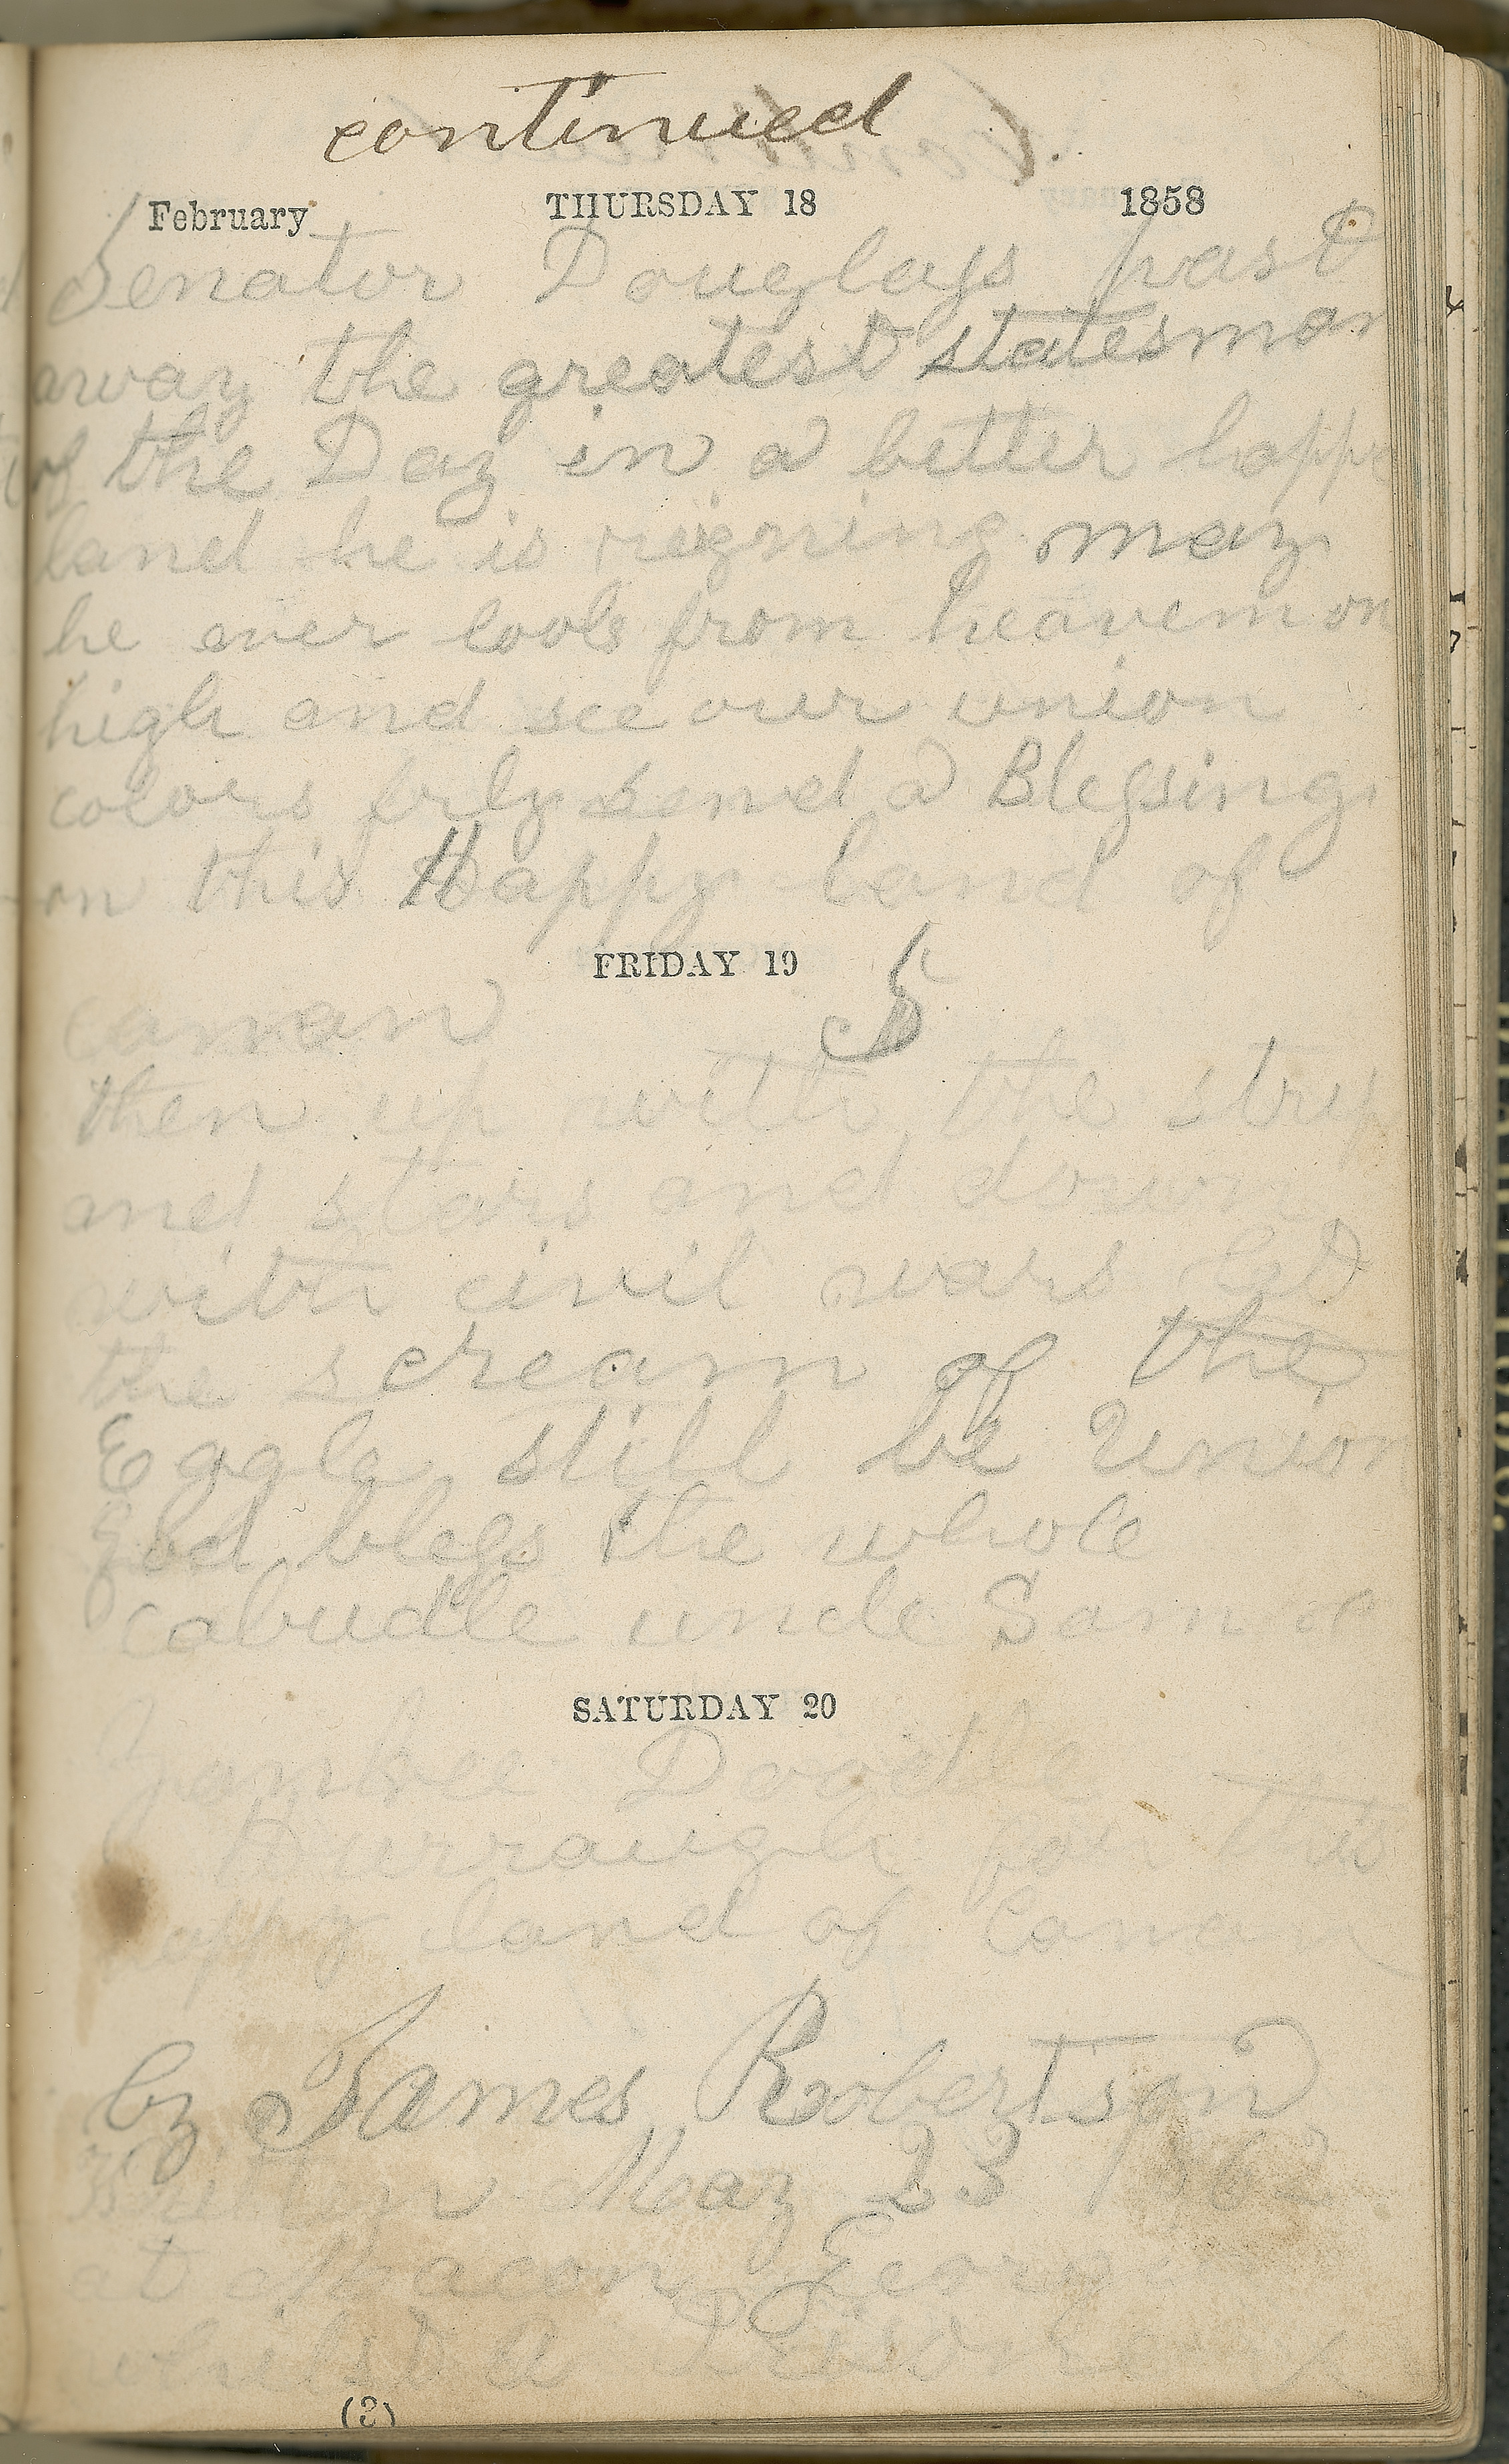 continued
February THURSDAY 18 1858
Senator Douglass past
away the greatest statesman
of the Day in a better happy
land he is reigning may
he ever look from heavem on
high and see our union
colors frly send a Blessing
on this Happy land of
FRIDAY 19
Canaan 5
then up with the strip
and stars and down
with civil wars let
the scream of the
Eagle still be Union
God bless the whole
cabudle uncle Sam
SATURDAY 20
Yankee Doodle
Hurraugh for this
happy land of Canaan
by James Robertson
Written May 23 1862
at Macon Georgia
whilst a Prisoner
(3)